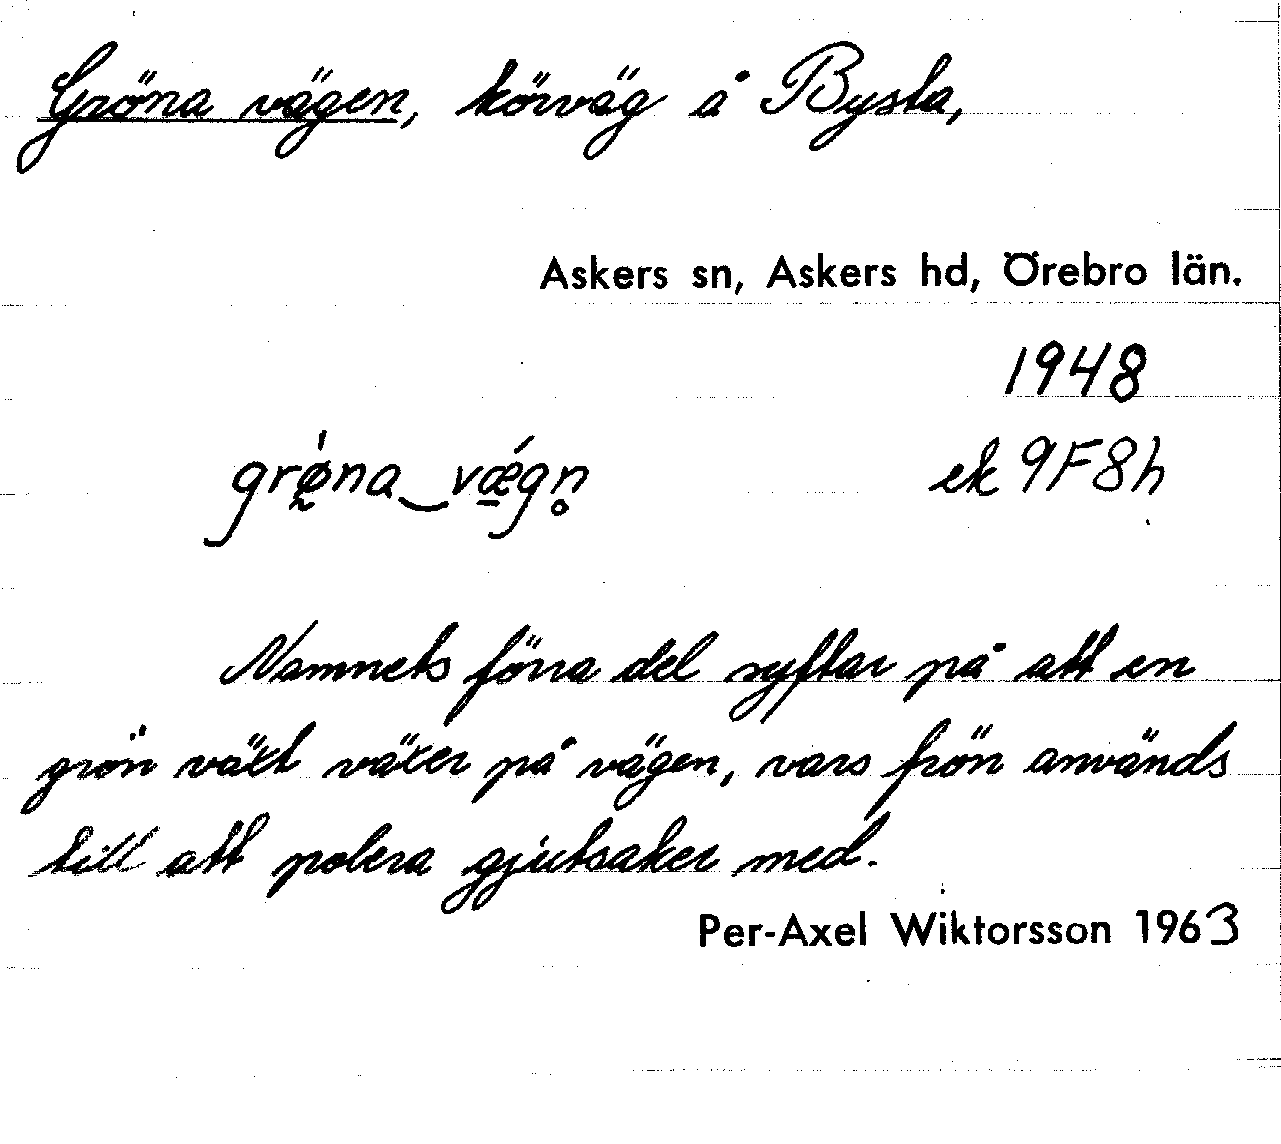 Gröna vägen, körväg å Bysta,
Askers sn, Askers hd, Örebro län.
1948
grǿ̨na‿vǽ̲gn̥ ek 9F8h
Namnets förra del syftar på att en
grön växt växer på vägen, vars frön används
till att polera gjutsaker med.
Per-Axel Wiktorsson 1963